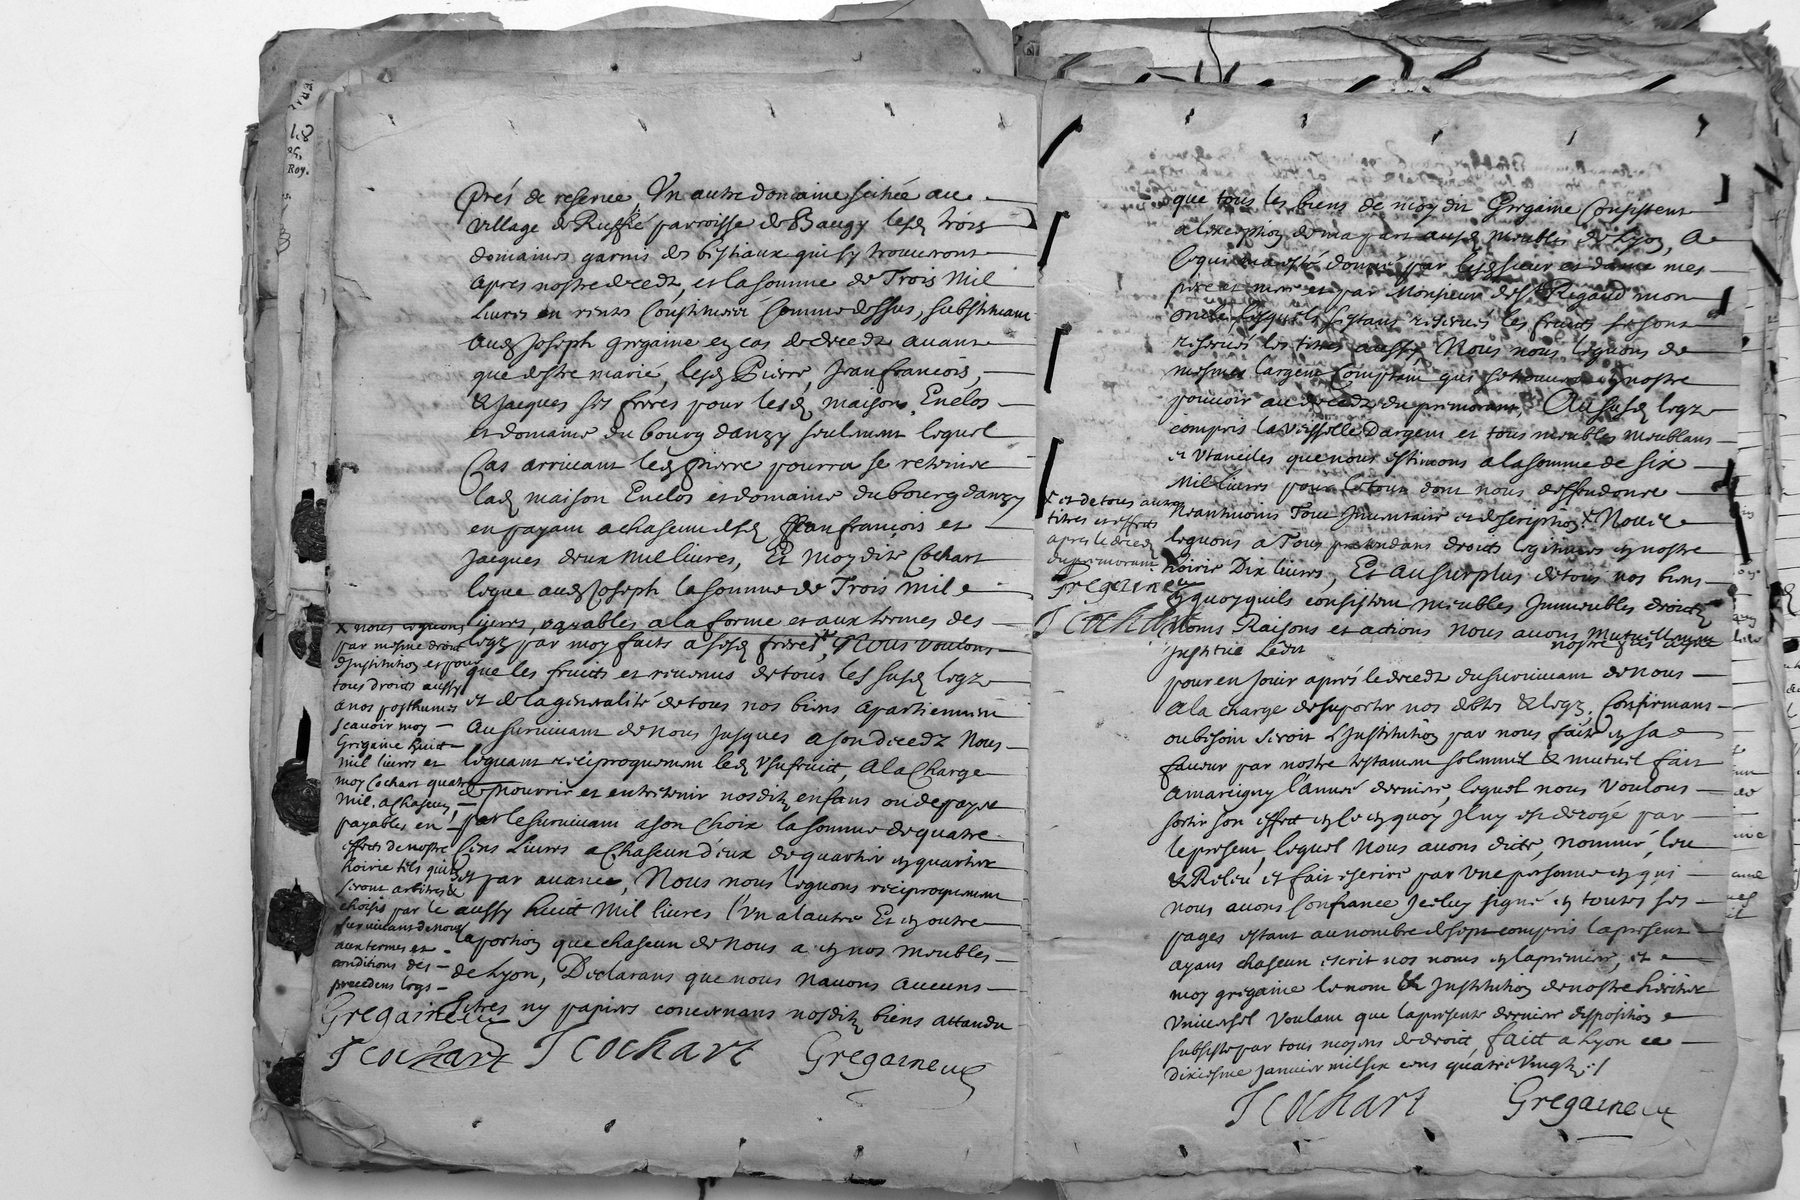 Prés de reserve, Un autre domaine scitüé au
village de Ruffié parroisse de Baugy lesd trois
domaines garnis des bestiaux qui sy trouveront
apres nostre decedz, et la somme de Trois Mil
Livres en rentes Constituées Comme dessus, substituant
aud Joseph gregaine en cas de decedz avant
que destre marié, lesd Pierre, Jean francois,
& Jacques ses freres pour lesd maisons, Enclos
et domaine du bourg danzy seulement lequel
Cas arrivant led pierre pourra se retenir
lad maison Enclos et domaine du bourg danzy
en payant a chascun desd Jean françois et
Jacques deux mil livres, Et Moy dite Cochart
legue aud Joseph la somme de Trois mil
livres, payables a la forme et aux termes des
legz par moy faits a sesd freres, Nous voulons
que les fruits et revenus de tous les susd legz
et de la generalité de tous nos biens apartiennent
au survivant de nous Jusques a son decedz Nous
leguant reciproquement led Usufruict, A la Charge
de nourrir et entretenir nosditz enfans ou de payer
par le survivant a son choix la somme de quatre
cens Livres a Chascun d'eux de quartier en quartier
et par avance, Nous nous leguons reciproquement
aussy huict Mil livres l'Un a l'autre Et en outre
la portion que chascun de Nous a en nos meubles
de Lyon, Declarans que nous n'avons aucuns
titres ny papiers concernans nosditz biens attandu
x nous leguons
par mesme droit
d'Institution et pour
tous droits aussy
a nos posthumes
scavoir moy
Grégaine huict
mil livres et
moy Cochart quatre
mil, a chascun,
payables en
effects de nostre
hoirie tels quilz
seront arbitrés &
choisis par le
survivans de nous
aux termes et
conditions des
precedens legs
Gregaine
J Cochart J Cochart Gregaine
que tous les biens de moy dit Gregaine Consistent
a l'exception de ma part ausd meubles de Lyon, A
Ce qui m'a esté donné par lesd sieur et dame mes
pere et mere et par Monsieur de St Rigaud mon
oncle, lesquels s'estans reservés les fruits se sont
reservés les titres aussy, Nous nous leguons de
mesmes l'argent Comptant qui se trouvera en nostre
pouvoir au decedz du premorant, Au susd legz
compris la Vaisselle d'argent et tous meubles meublans
et Utanciles que nous estimons a la somme de six
Mil livres pour le tout dont nous deffendons
Neantmoins Tout Inventaire et description x Nous
leguons a Tous pretendans droits legitimes en nostre
hoirie Dix livres, Et au surplus de tous nos biens
en quoy quils consistent meubles Immeubles droits
Noms Raisons et actions Nous avons Mutuellement
Institué Ledit nostre fils aisné
pour en Jouir aprés le decedz du survivant de nous
a la charge de suporter nos debtes & legz, Confirmans
ou besoin seroit L'Institution par nous faite en sa
faveur par nostre testament solemnel & mutuel fait
a Marcigny l'année derniere, lequel nous voulons
sortir son effect en ce en quoy Il n'y est derogé par
le present, lequel Nous avons dicté, nommé, leu
& Releu et fait escrire par une personne en qui
nous avons Confiance Jcelluy signé en toutes ses
pages estant au nombre de sept compris la presente
ayans chascun escrit nos noms en la premiere, et
moy gregaine le nom & Institution de nostre heritier
Universel Voulant que la presente derniere disposition
subsiste par tous moyens de droict, faict a Lyon ce
dixiesme Janvier mil six cens quatre vingtz ./
x et de tous autres
titres et effects
apres le decedz
du premorant
Gregaine
J Cochart
J Cochart Gregaine